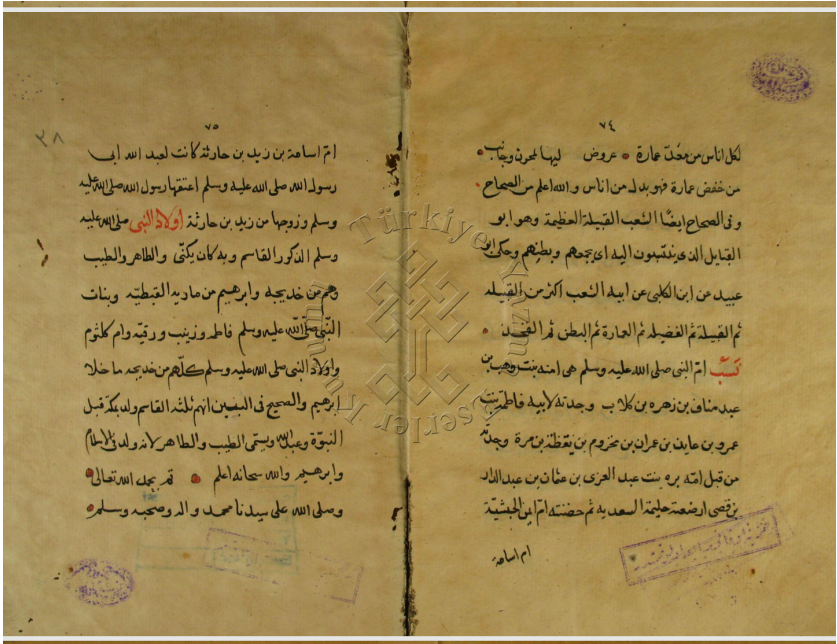 ٧٤
لكل اناس من معدّ عمارة عروض ليها لمحرون وجانب
من خفض عمارة فهو بدل من اناس والله اعلم من الصحاح
وفى الصحاح ايضًا الشعب القبيلة العظيمة وهو ابو
القبايل الذى ينتسبون اليه اى يجمعهم وبطنهم وحكى ابو
عبيد عن ابن الكلبى عن ابيه الشعب اكثر من القبيله
ثم القبيلة ثم الفضيله ثم العارة ثم البطن ثم الفخذ
نسب امّ النبى صلى الله عليه وسلم هى امنه بنت وهب بن
عبد مناف بن زهره بن كلاب وجدته لابيه فاطمة بنت
عمرو بن عايد بن عمران بن مخزوم بن يقظة بن مرة وجدته
من قبل امّه بره بنت عبد العزى بن عثمان بن عبد الدار
بن قصى ارضعته حليمة السعديه ثم حضنته امّ ايمن الحبشيّة
ام اسامة
٧٥
امّ اسامة بن زيد بن حارثة كانت لعبد الله ابى
رسول الله صلى الله عليه وسلم اعتقها رسول الله صلى الله عليه
وسلم وزوجها من زيد بن حارثة اولاد النبى صلى الله عليه
وسلم الذكور القاسم وبه كان يكنّى والطاهر والطيب
وهم من خديجه وابرهيم من ماديه القبطيّه وبنات
النّبى صلى الله عليه وسلم فاطمه وزينب ورقيّه وام كلثوم
واولاد النبى صلى الله عليه وسلم كلّهم من خديجه ما خلا
ابرهيم والصحيح فى البنين انهم ثلثه القاسم ولد بمكّة قبل
النبوّة وعبد الله ويسمّى الطيب والطاهر لانه ولد فى الاسلام
وابرهيم والله سبحانه اعلم تم بحمد الله تعالى
وصلى الله على سيدنا محمد واله وصحبه وسلم
٣٨
Türkiye Yazma Eserler Kurumu